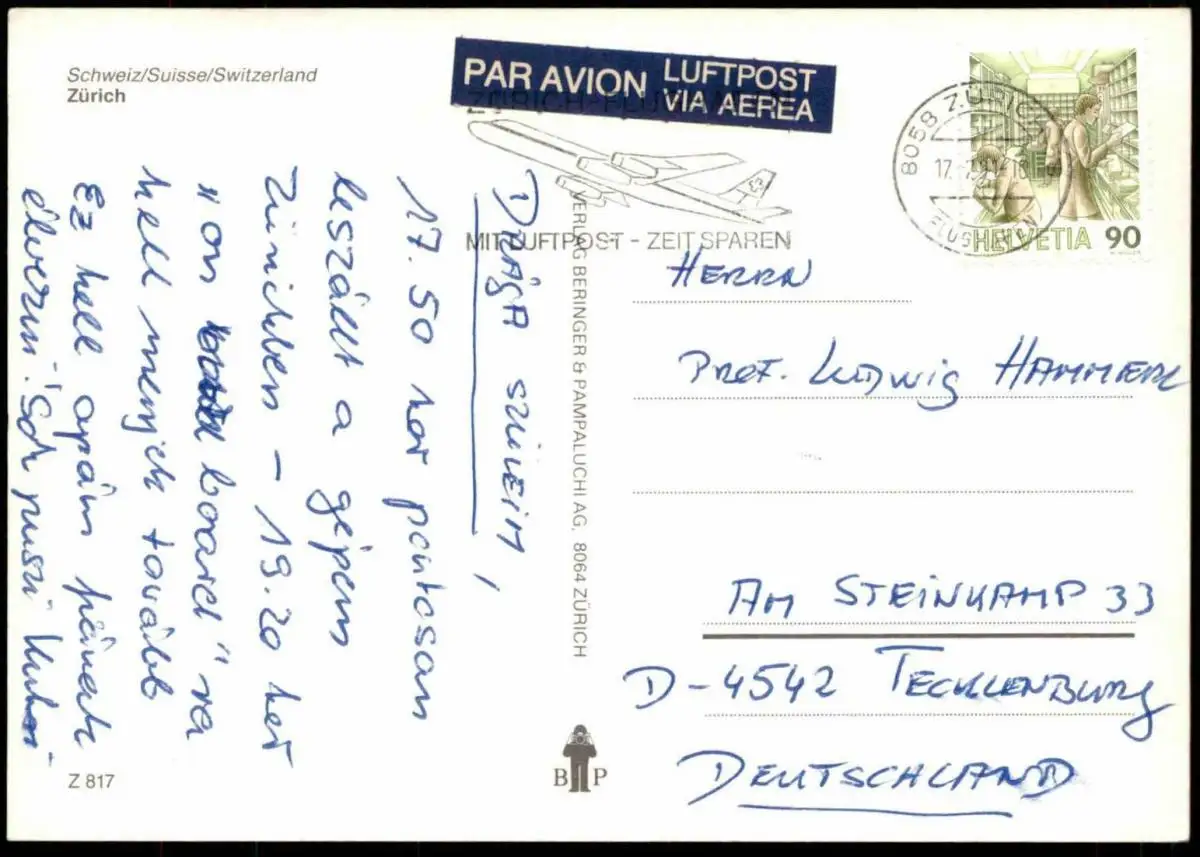 Schweiz/Suisse/Switzerland
Zürich
PAR AVION LUFTPOST
VIA AEREA
MIT LUFTPOST - ZEIT SPAREN
8058 ZÜRICH
HELVETIA 90
DRÁGA SZÜLEIM,
17.50 kor pontosan
leszállt a gépem
Zürichben - 19.20 kor
kell menjek tovább
Ez kell apám
"on board" ra
Sok puszi
VERLAG BERINGER & PAMPALUCHI AG, 8064 ZÜRICH
HERRN
PROF. LUDWIG HAMMERL
AM STEINKAMP 33
D-4542 TECKLENBURG
DEUTSCHLAND
Z 817
B P